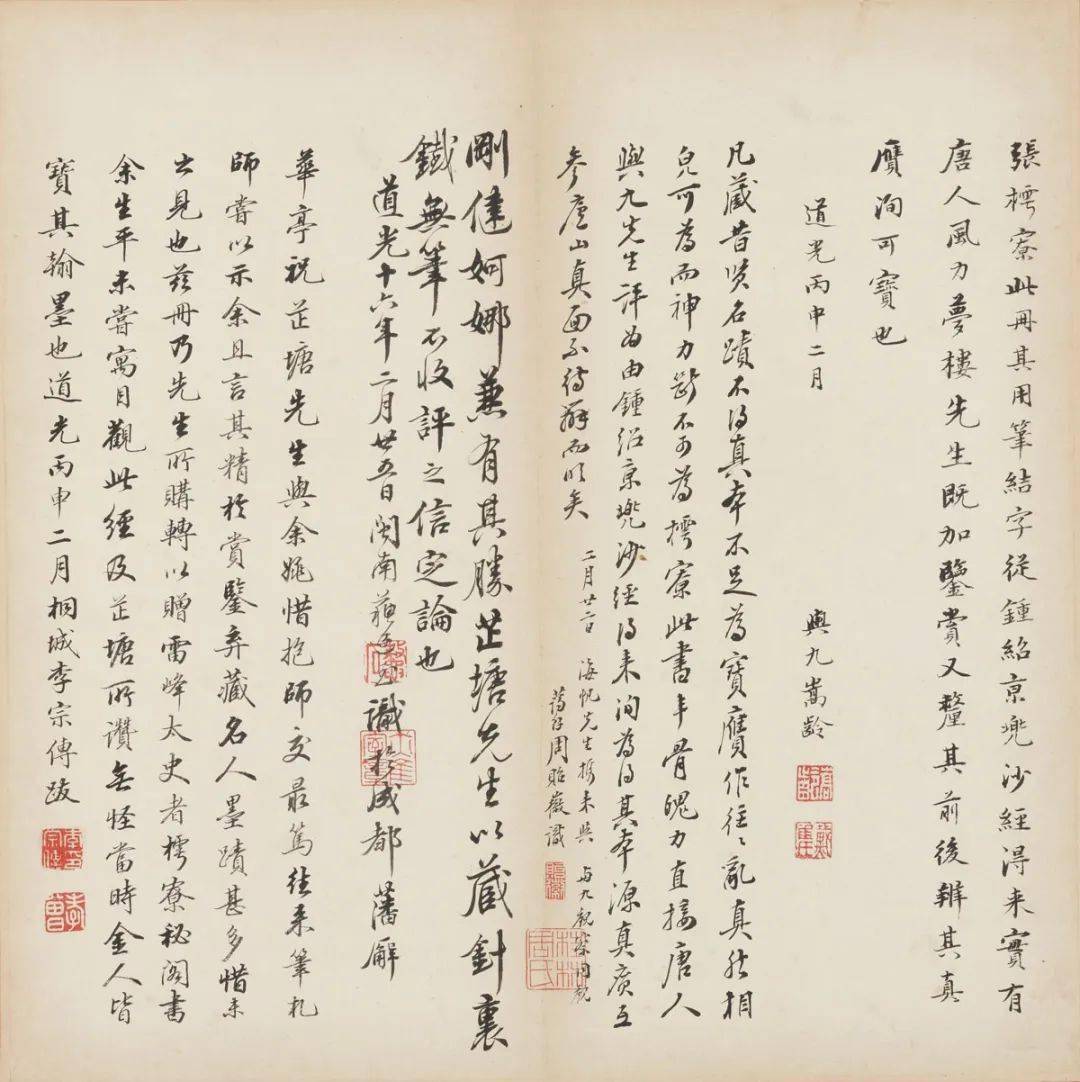 張樗寮此冊其用筆結字從鍾紹京兜沙經得来實有
唐人風力夢樓先生既加鑒賞又釐其前後辨其真
贋洵可寶也
道光丙申二月
與九嵩齡
凡蔵昔贤名蹟不得真本不足為寶贋作往〻亂真然相
皃可為而神力斷不可為樗寮此書丰骨魄力直接唐人
與九先生評為由鍾紹京兜沙經得来洵為得其本源真贋互
参廬山真面不待辯而明矣
二月廿二日
海帆先生携来與
与九親家同觀
周貽徽識
剛健婀娜兼有其勝芷塘先生以蔵針裏
鐵無筆不收評之信定論也
道光十六年二月廿五日閩南蘇廷玉識於成都藩廨
華亭祝芷塘先生與余姚惜抱師交最篤往来筆札
師嘗以示余且言其精於賞鑒弆藏名人墨蹟甚多惜未
之見也茲冊乃先生所購轉以贈雷峰太史者樗寮秘閣書
余生平未嘗寓目觀此經及芷塘所讚無怪當時金人皆
寶其翰墨也道光丙申二月桐城李宗傳跋